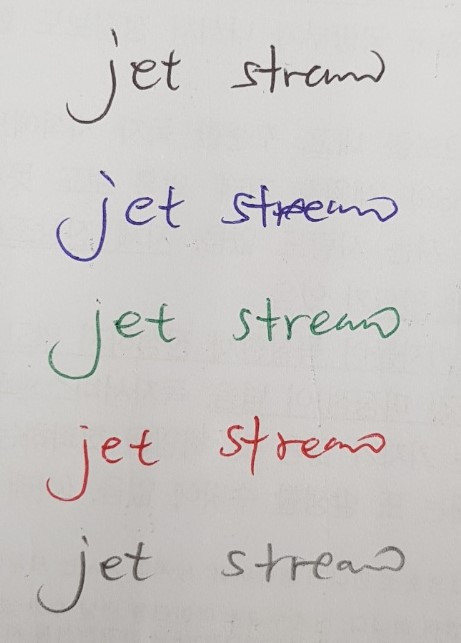 jet stream
jet stream
jet stream
jet stream
jet stream